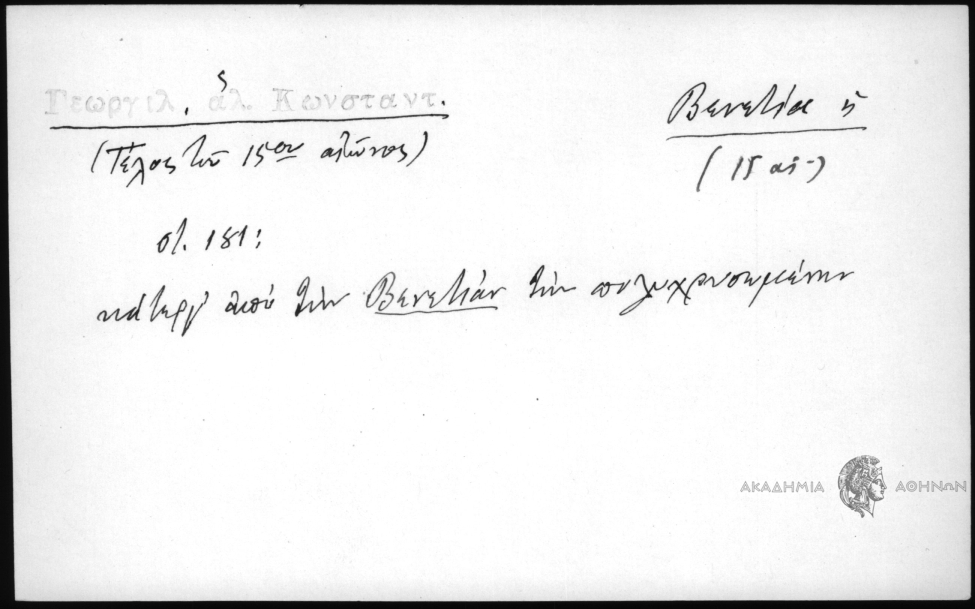 Γεωργιλ. ἁλ. Κωνσταντ.
(Τέλος τοῦ 15ου αἰῶνος)
Βενετία ἡ
(15 αἰ.)
στ. 181:
κάτεργ' ἀπὸ τὴν Βενετιὰν τὴν πολυχρυσωμένην
ΑΚΑΔΗΜΙΑ ΑΘΗΝΩΝ